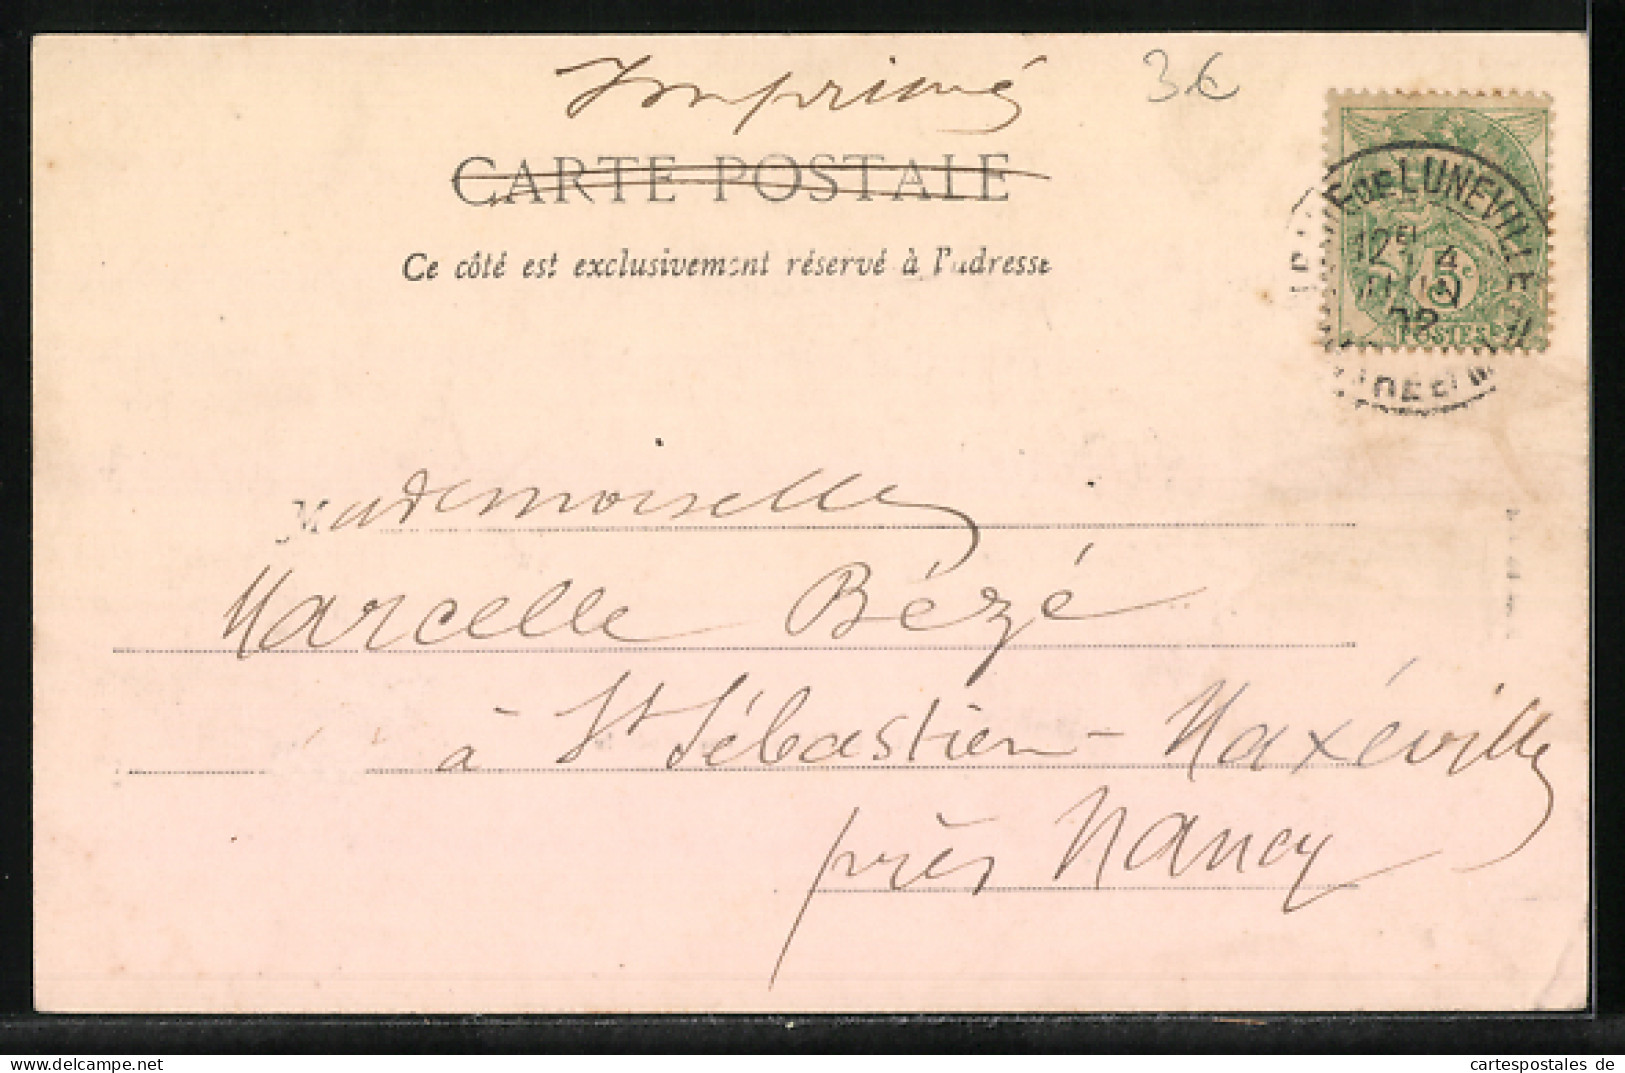 Imprimé
3€
CARTE POSTALE
Ce côté est exclusivement réservé à l'adresse
DE LUNEVILLE
12 E 4
JUIN
02
5c
POSTES
Mademoiselle
Marcelle Bézé
à St Sébastien - Maxéville
près Nancy
cartespostales de